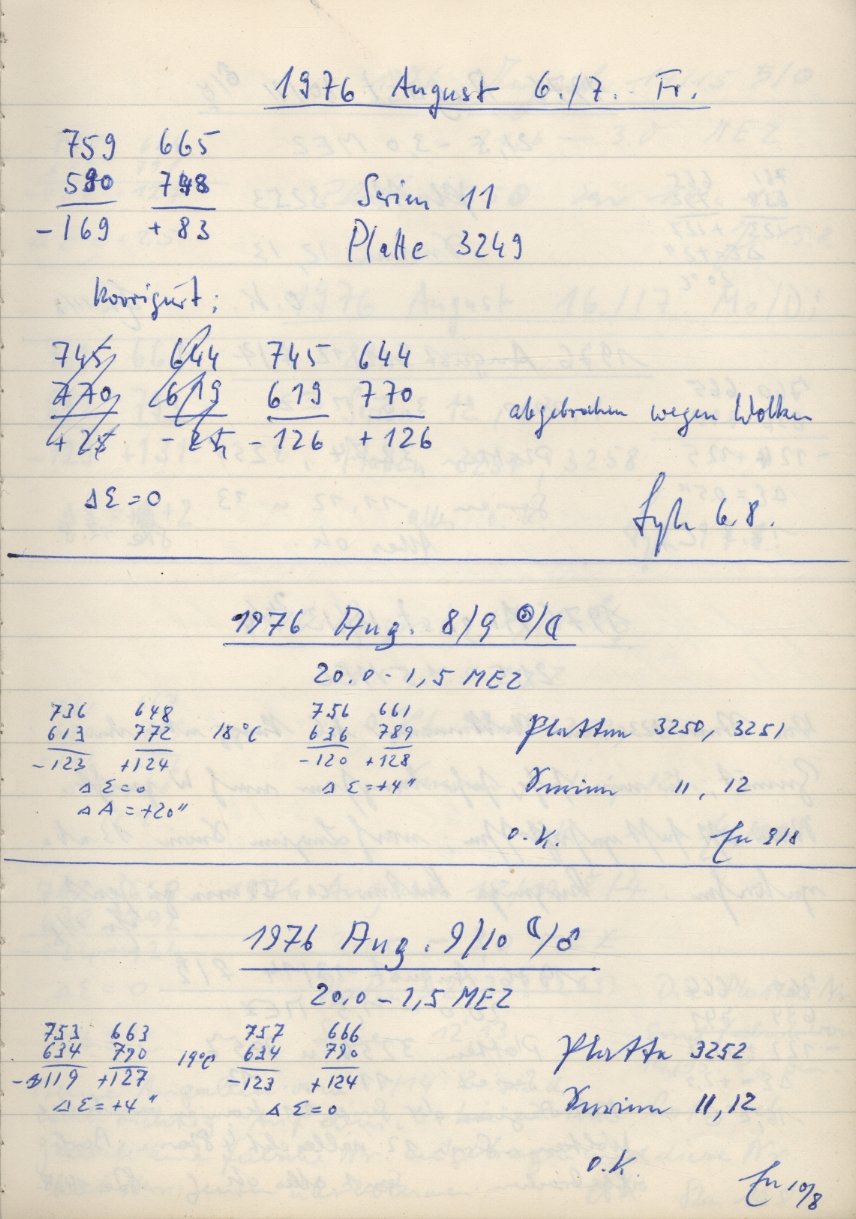 1976 August 6./7. Fr.
759 665
590 748
-169 +83
Serien 11
Platte 3249
korrigiert:
745 644 745 644
770 619 619 770
+25 -25 -126 +126
abgebrochen wegen Wolken
ΔΣ=0
6.8.
1976 Aug. 8/9 ☉/☾
20.0-1,5 MEZ
736 648 756 661
613 772 18°C 636 789
-123 +124 -120 +128
Platten 3250, 3251
ΔΣ=0 ΔΣ=+4"
Serien 11, 12
ΔA=+20"
o.K. 9/8
1976 Aug. 9/10 ☾/♂
20.0-1,5 MEZ
753 663 757 666
634 790 19°C 634 790
-119 +127 -123 +124
Platte 3252
ΔΣ=+4" ΔΣ=0
Serien 11, 12
o.K.
10/8